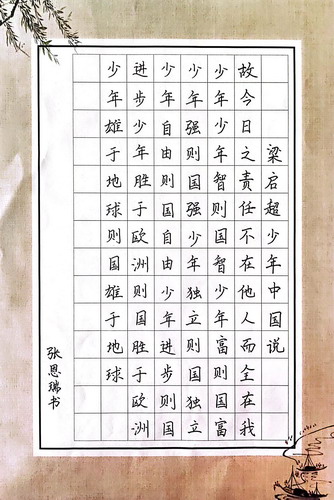 梁启超少年中国说
故今日之责任不在他人而全在我
少年少年智则国智少年富则国富
少年强则国强少年独立则国独立
少年自由则国自由少年进步则国
进步少年胜于欧洲则国胜于欧洲
少年雄于地球则国雄于地球
张恩瑞书